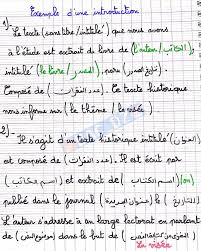 Exemple d'une introduction
1) Le texte (sans titre / intitulé) que nous avons
à l'étude est extrait du livre de (l'auteur / الكاتب),
intitulé (le livre / المصدر), paru (تاريخ المصدر).
Composé de (عدد الفقرات). Ce texte historique
nous informe sur (le thème / la visée)
2) Il s'agit d'un texte historique intitulé (العنوان)
et composé de (عدد الفقرات). Il est écrit par
(اسم الكاتب) et extrait de (اسم الكتاب) (ou)
publié dans le journal (عنوان الجريدة) le (التاريخ)
L'auteur s'adresse à un large lectorat en parlant
de (موضوع النص) dans le but de
La visée